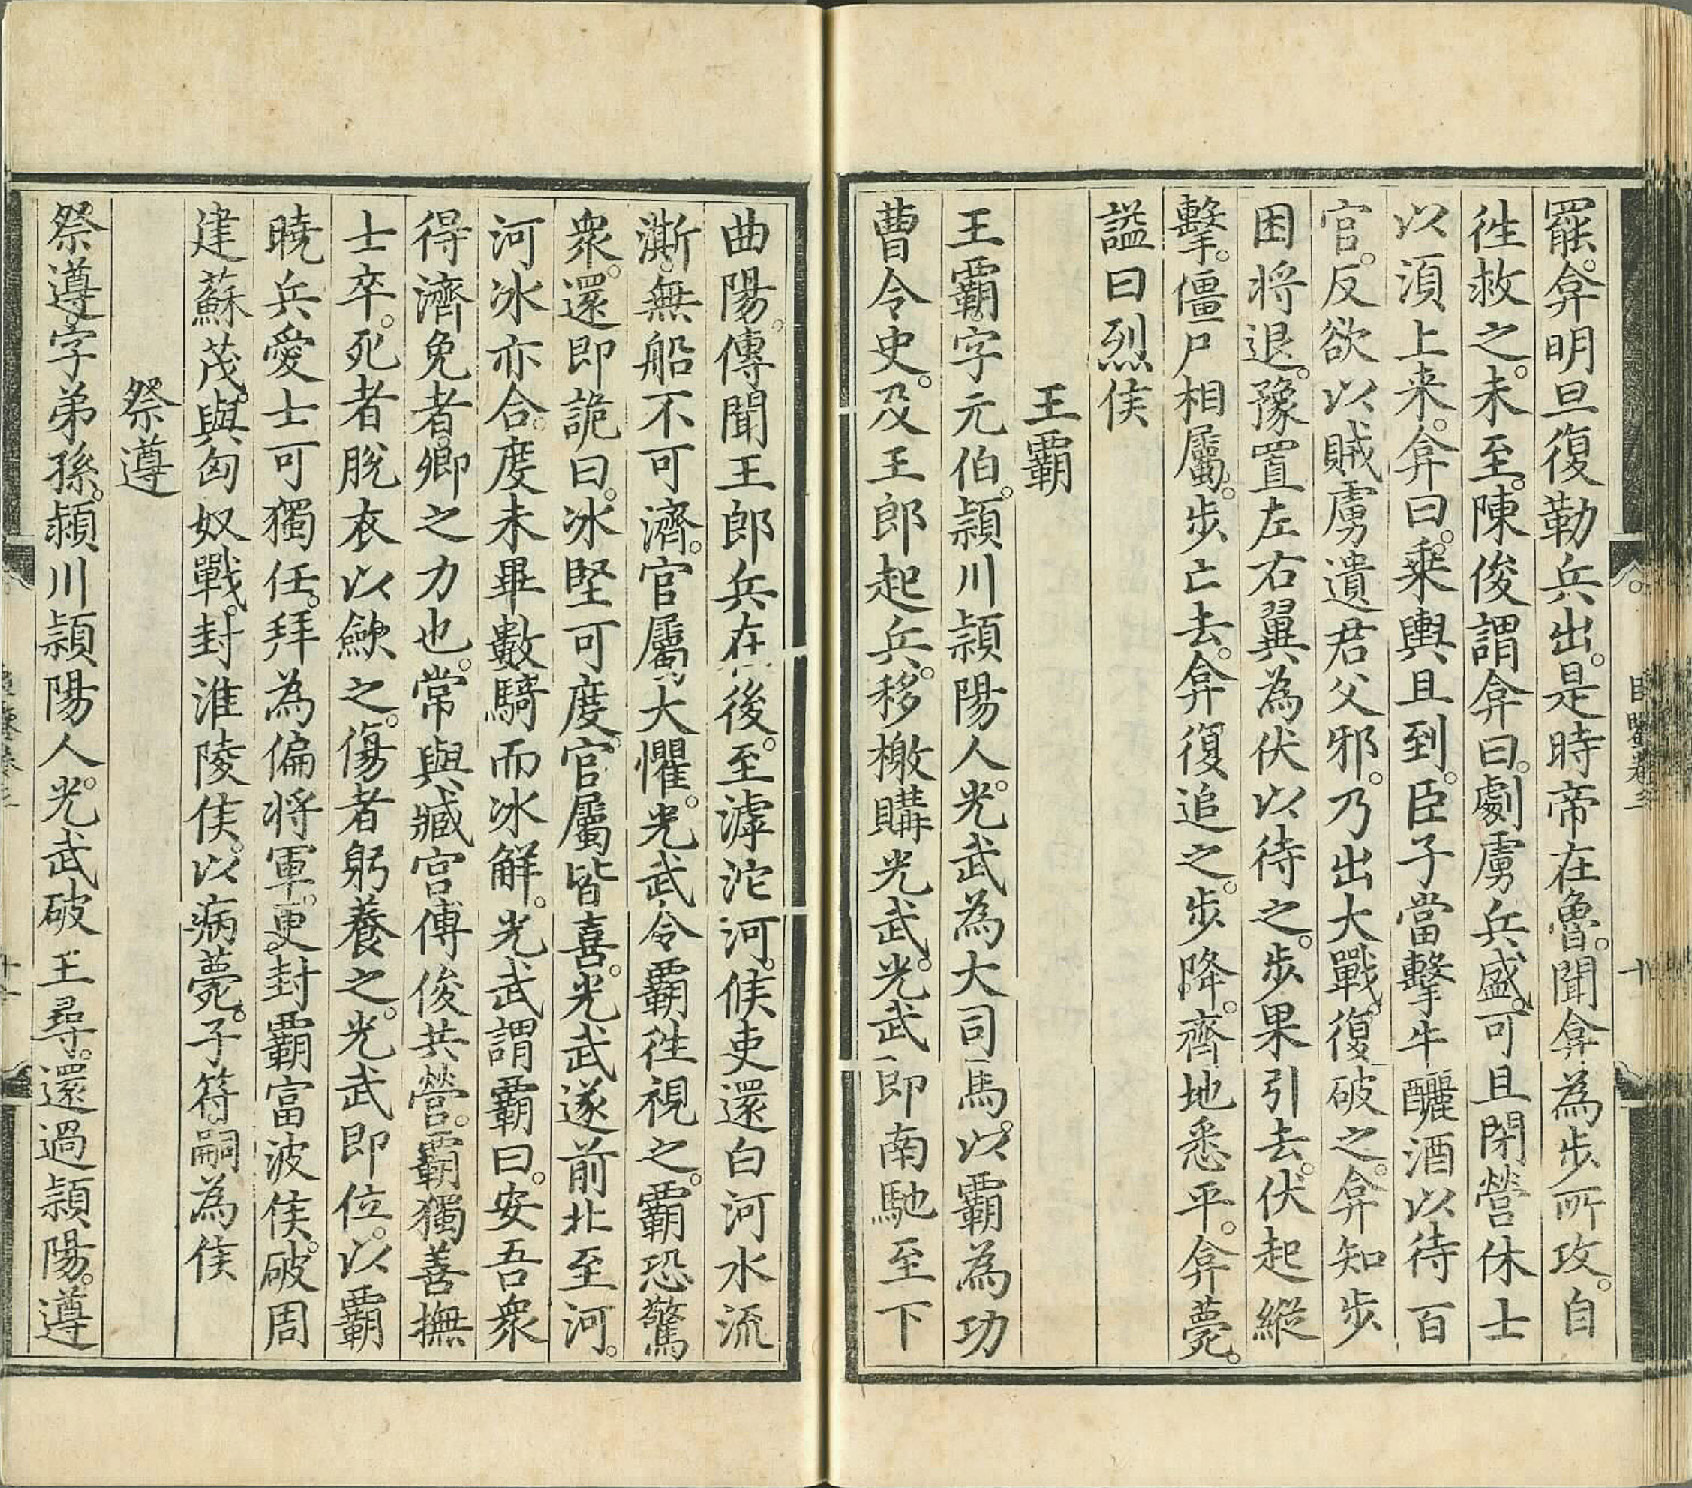 罷。弇明旦復勒兵出。是時帝在魯。聞弇為步所攻。自
徃救之。未至。陳俊謂弇曰。劇虜兵盛。可且閉營休士
以湏上来。弇曰。乗輿且到。臣子當擊牛釃酒以待百
官。反欲以賊虜遺君父邪。乃出大戰。復破之。弇知步
困将退。豫置左右翼為伏以待之。步果引去。伏起縱
擊。僵尸相屬。步亡去。弇復追之。步降。齊地悉平。弇薨。
謚曰烈侯
王霸
王霸字元伯。潁川潁陽人。光武為大司馬。以霸為功
曹令史。及王郎起兵。移檄購光武。光武即南馳至下
曲陽。傳聞王郎兵在後。至滹沱河。候吏還白河水流
澌。無船不可濟。官屬大懼。光武令霸徃視之。霸恐驚
衆。還即詭曰。冰堅可度。官屬皆喜。光武遂前北至河。
河冰亦合。度未畢數騎而冰解。光武謂霸曰。安吾衆
得濟免者。卿之力也。常與臧宫傅俊共營。霸獨善撫
士卒。死者脫衣以歛之。傷者躬養之。光武即位。以霸
曉兵愛士可獨任。拜為偏将軍。更封霸富波侯。破周
建蘇茂。與匈奴戰。封淮陵侯。以病薨。子符嗣為侯
祭遵
祭遵字弟孫。潁川潁陽人。光武破王尋。還過潁陽。遵